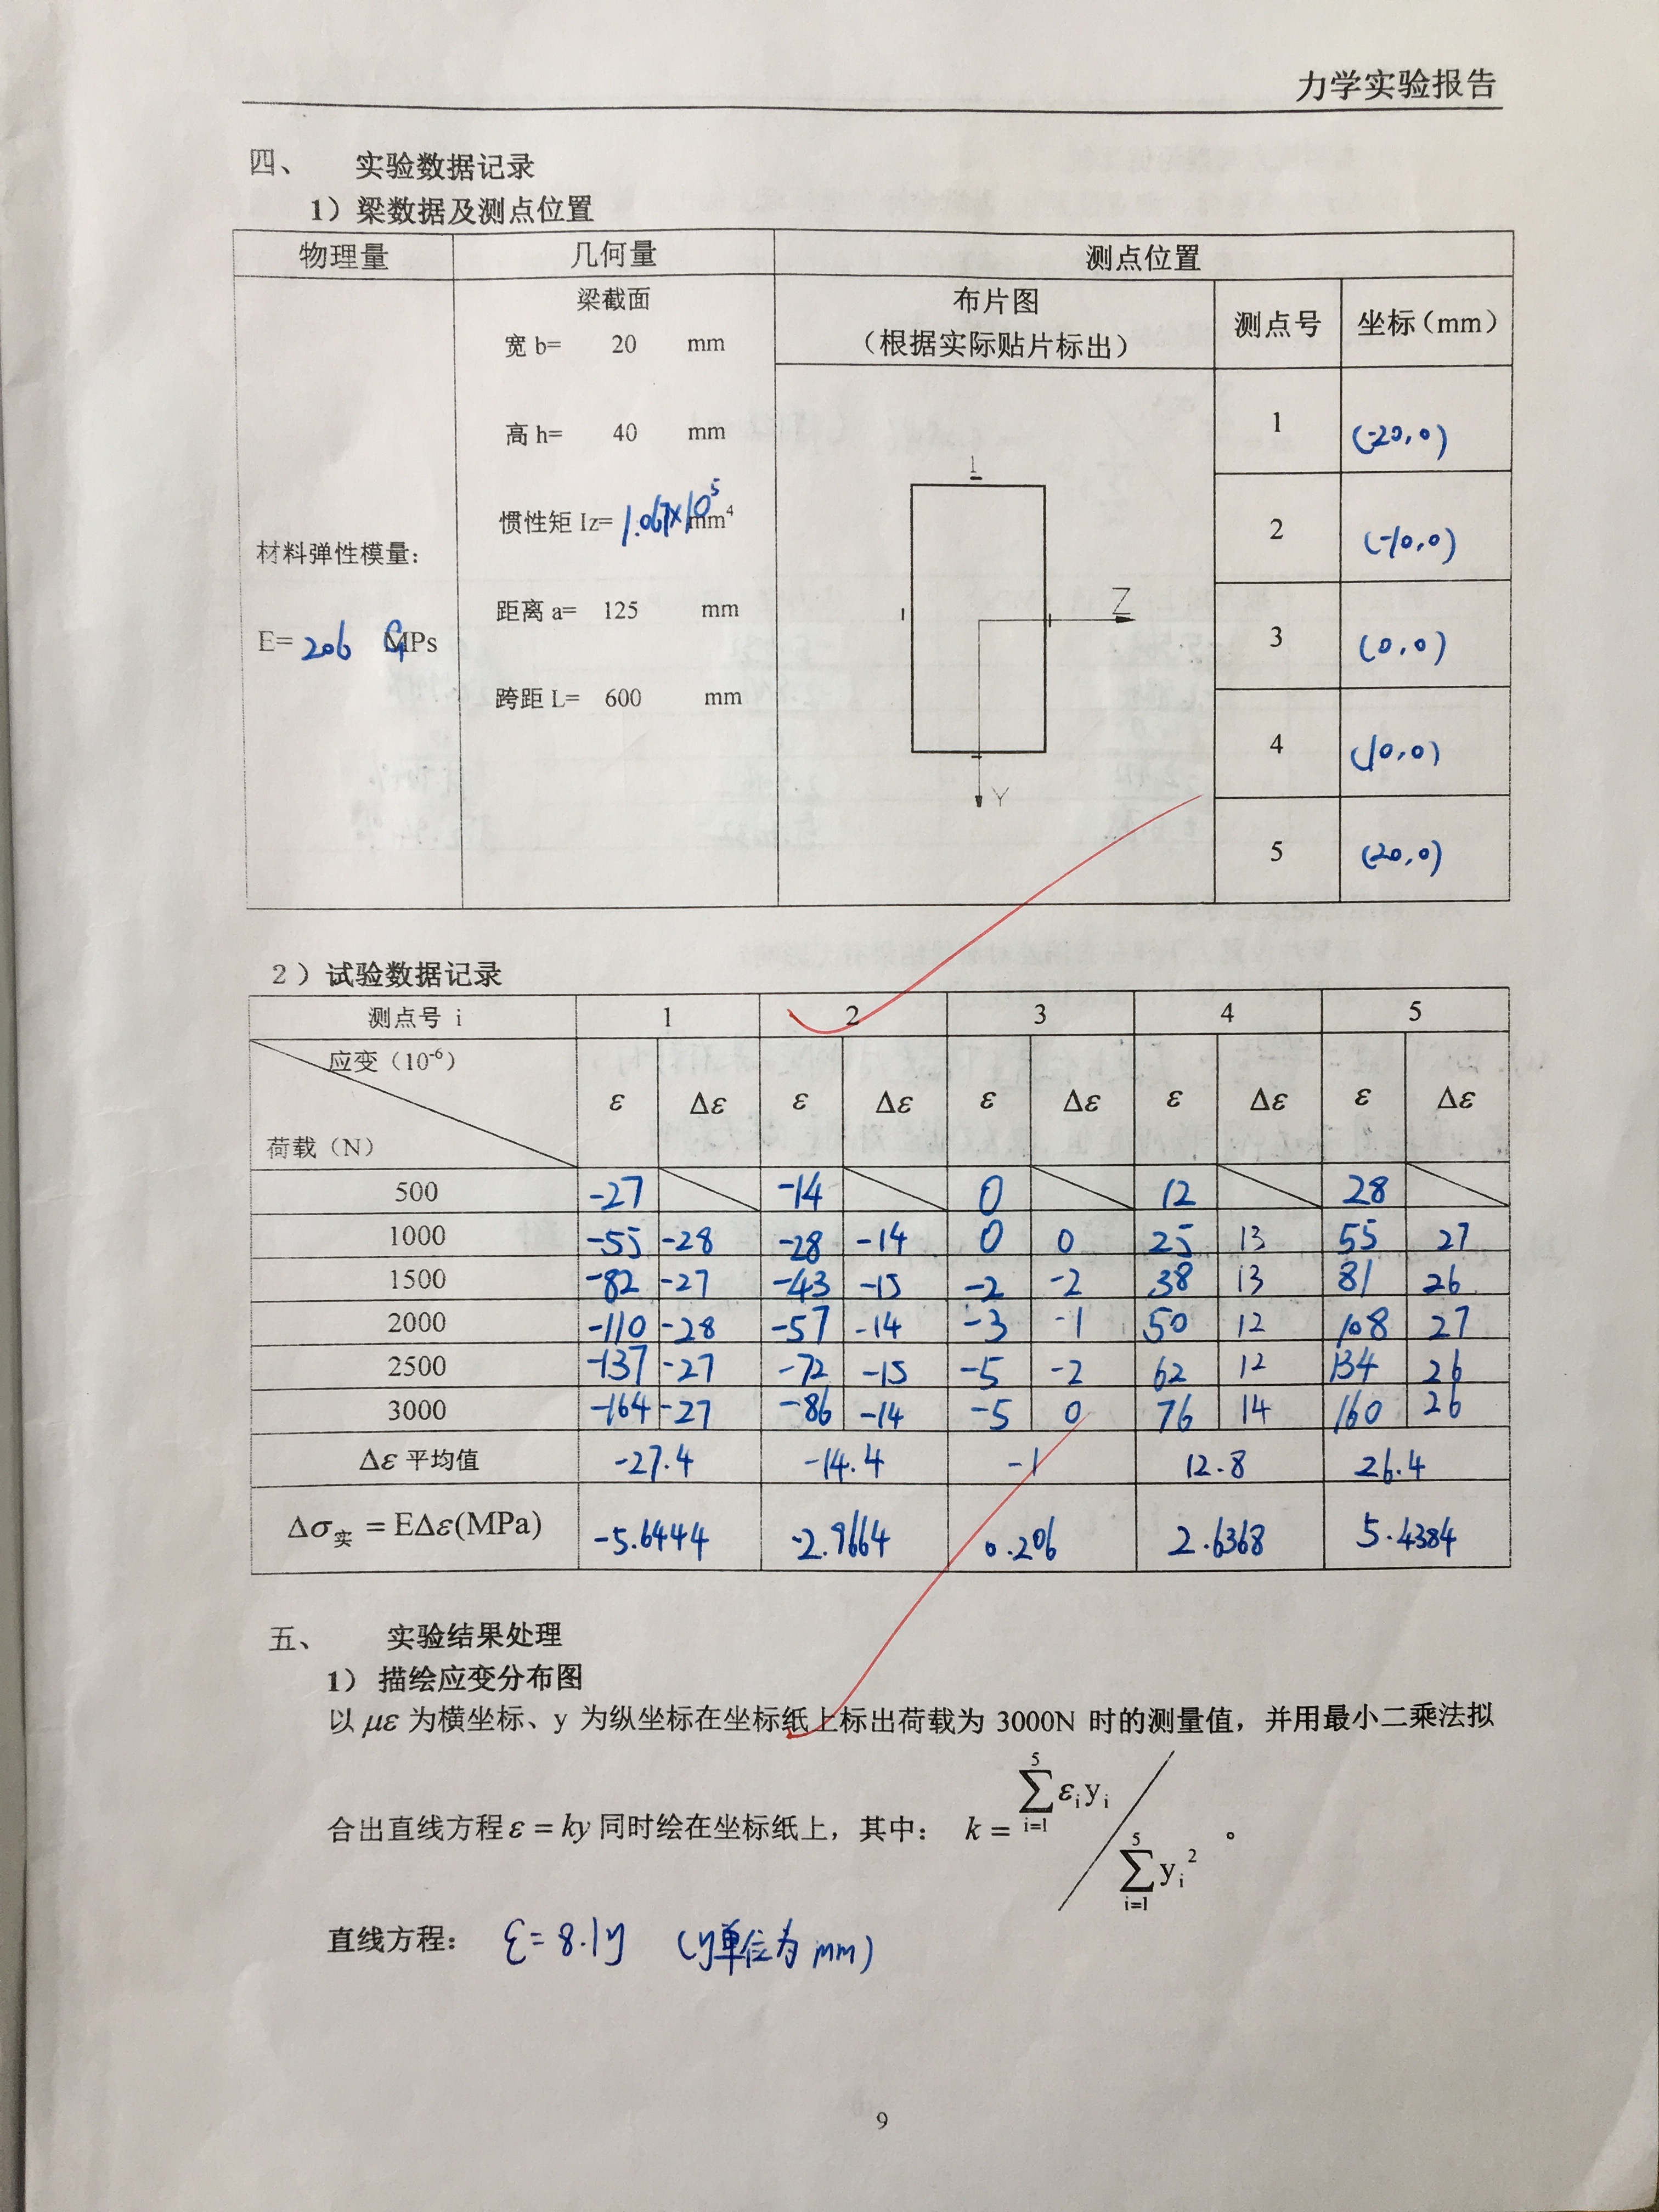 力学实验报告
四、 实验数据记录
1）梁数据及测点位置
物理量 几何量 测点位置
梁截面 布片图 测点号 坐标（mm）
（根据实际贴片标出）
宽 b= 20 mm
高 h= 40 mm
惯性矩 Iz= 1.067×10⁵ mm⁴
距离 a= 125 mm
跨距 L= 600 mm
材料弹性模量：
E= 206 GMPs
1
Z
Y
1 (-20,0)
2 (-10,0)
3 (0,0)
4 (10,0)
5 (20,0)
2）试验数据记录
测点号 i 1 2 3 4 5
应变（10⁻⁶） ε Δε ε Δε ε Δε ε Δε ε Δε
荷载（N）
500 -27 -14 0 12 28
1000 -55 -28 -28 -14 0 0 25 13 55 27
1500 -82 -27 -43 -15 -2 -2 38 13 81 26
2000 -110 -28 -57 -14 -3 -1 50 12 108 27
2500 -137 -27 -72 -15 -5 -2 62 12 134 26
3000 -164 -27 -86 -14 -5 0 76 14 160 26
Δε 平均值 -27.4 -14.4 -1 12.8 26.4
Δσ实 = EΔε(MPa) -5.6444 -2.9664 0.206 2.6368 5.4384
五、 实验结果处理
1） 描绘应变分布图
以 με 为横坐标、y 为纵坐标在坐标纸上标出荷载为 3000N 时的测量值，并用最小二乘法拟
合出直线方程 ε = ky 同时绘在坐标纸上，其中： k = ∑(i=1→5) εᵢyᵢ / ∑(i=1→5) yᵢ² 。
直线方程： ε=8.1y (y单位为mm)
9